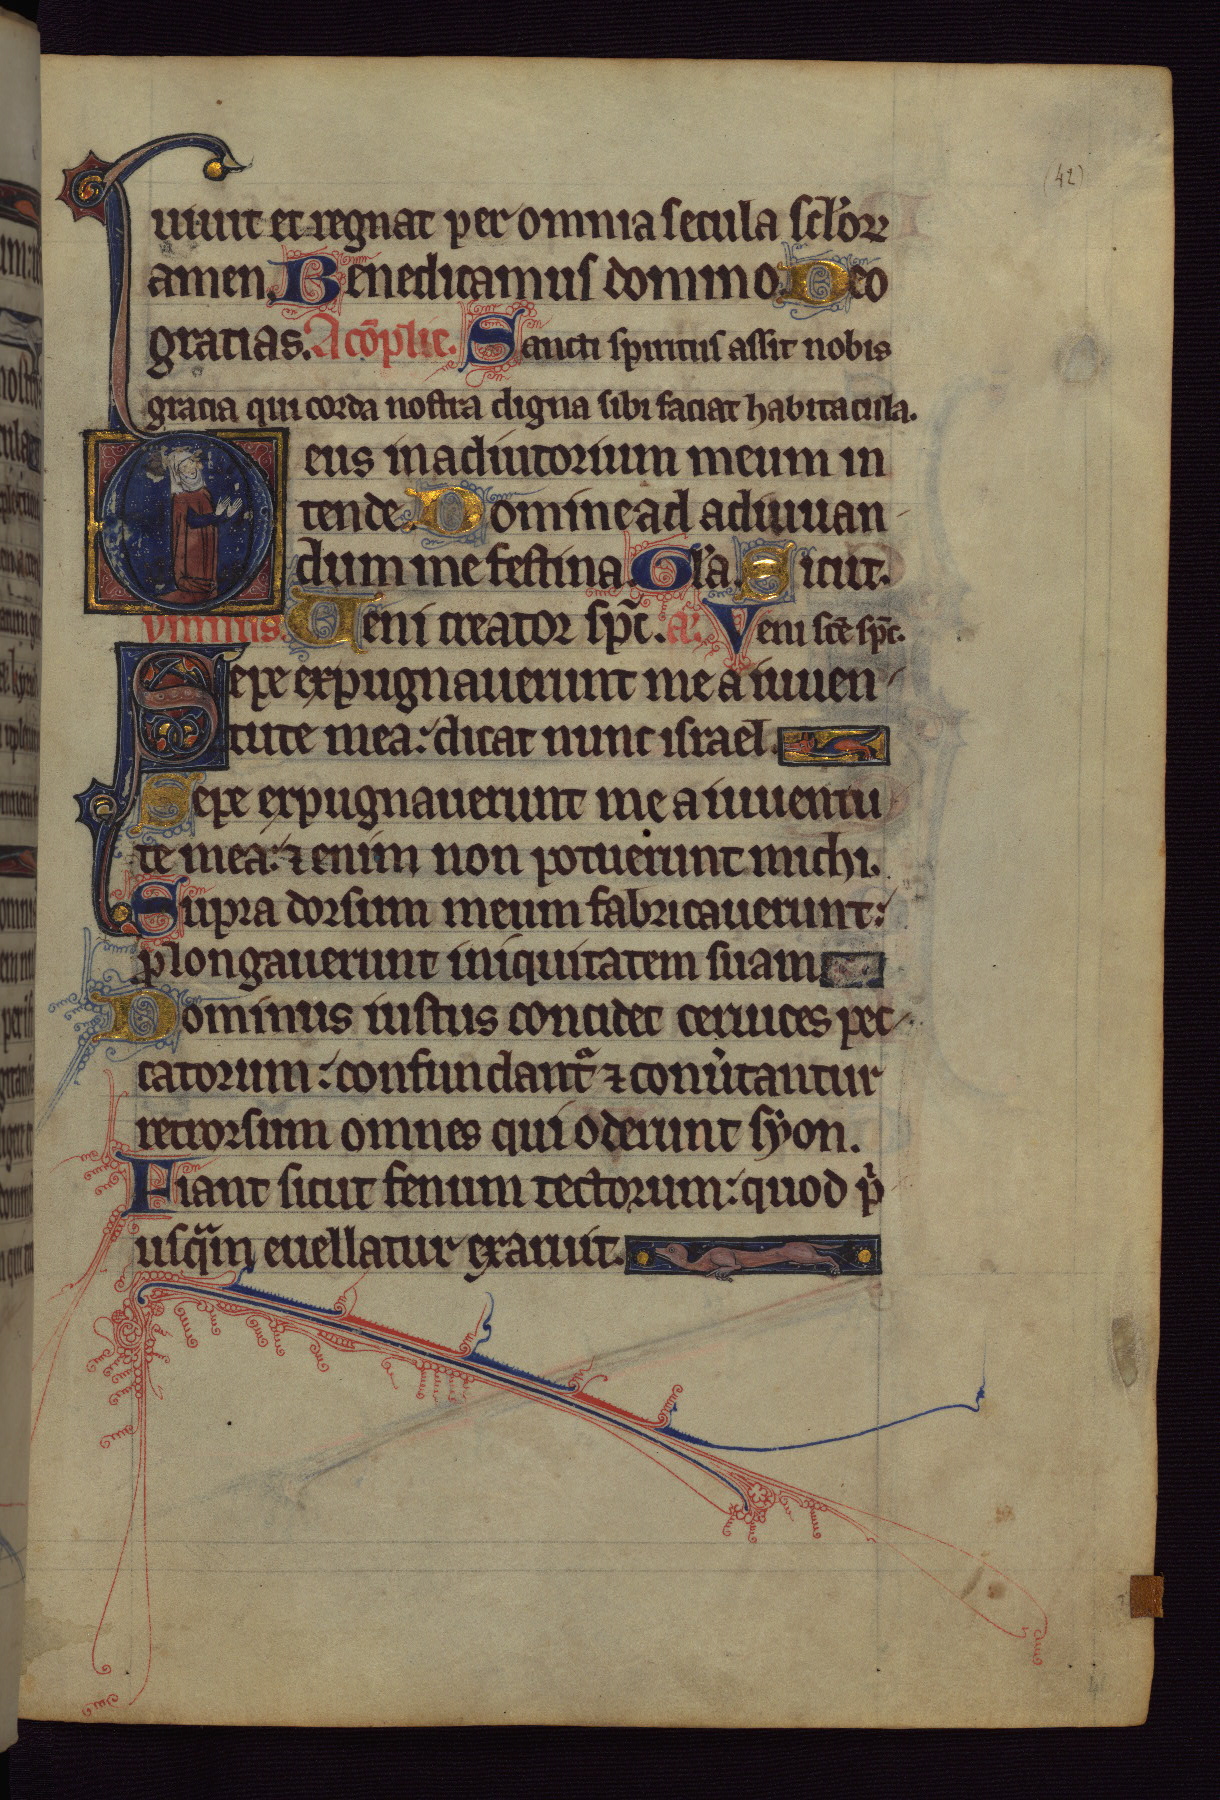 (42)
uiuit et regnat per omnia secula sclor
amen. Benedicamus domino. Deo
gracias. A cōplie. Sancti spiritus assit nobis
gracia qui corda nostra digna sibi faciat habitacula.
Deus in adiutorium meum in
tende. Domine ad adiuuan
dum me festina. Gla. Sicut.
ymnus. Ueni creator spc. a. Veni scē spc.
Sepe expugnauerunt me a iuuen
tute mea: dicat nunc israel.
Sepe expugnauerunt me a iuuentu
te mea: ⁊ enim non potuerunt michi.
Supra dorsum meum fabricauerunt:
plongauerunt iniquitatem suam
Dominus iustus concidet ceruices pec
catorum: confundant ⁊ conutantur
retrorsum omnes qui oderunt syon.
Fiant sicut fenum tectorum: quod p
usqm euellatur exaruit.